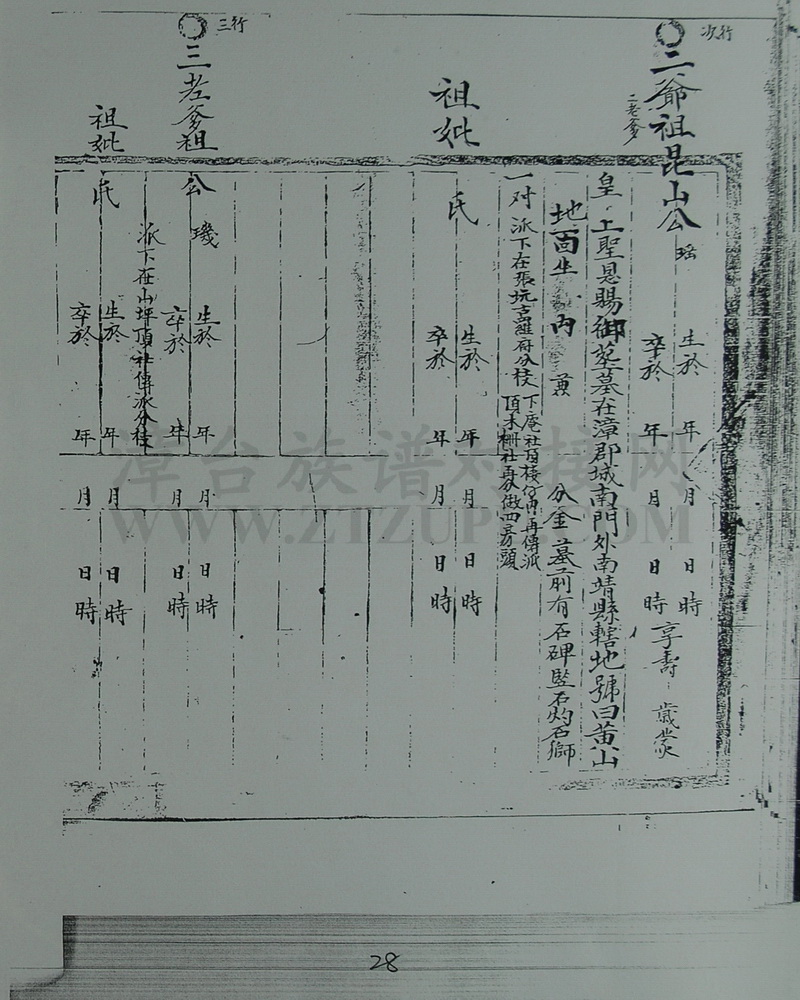 次行
二爺祖昆山公 瑶
二老爹
生於 年 月 日 時
卒於 年 月 日 時 享壽 歲蒙
皇上聖恩賜御葬墓在漳郡城南門外南靖縣轄地號曰黃山
地面坐 內 兼 分金墓前有石碑監石灼石獅
一对 派下在張坑吉羅府分枝 下庵社頂樓仔角再傳派
頂禾柵社再分做四房頭
祖妣
氏
生於 年 月 日 時
卒於 年 月 日 時
三行
三老爹祖
公 璣
生於 年 月 日 時
卒於 年 月 日 時
派下在山坪頂社傳派分枝
祖妣
氏
生於 年 月 日 時
卒於 年 月 日 時
漳台族谱对接网
WWW.ZTZUPU.COM
28